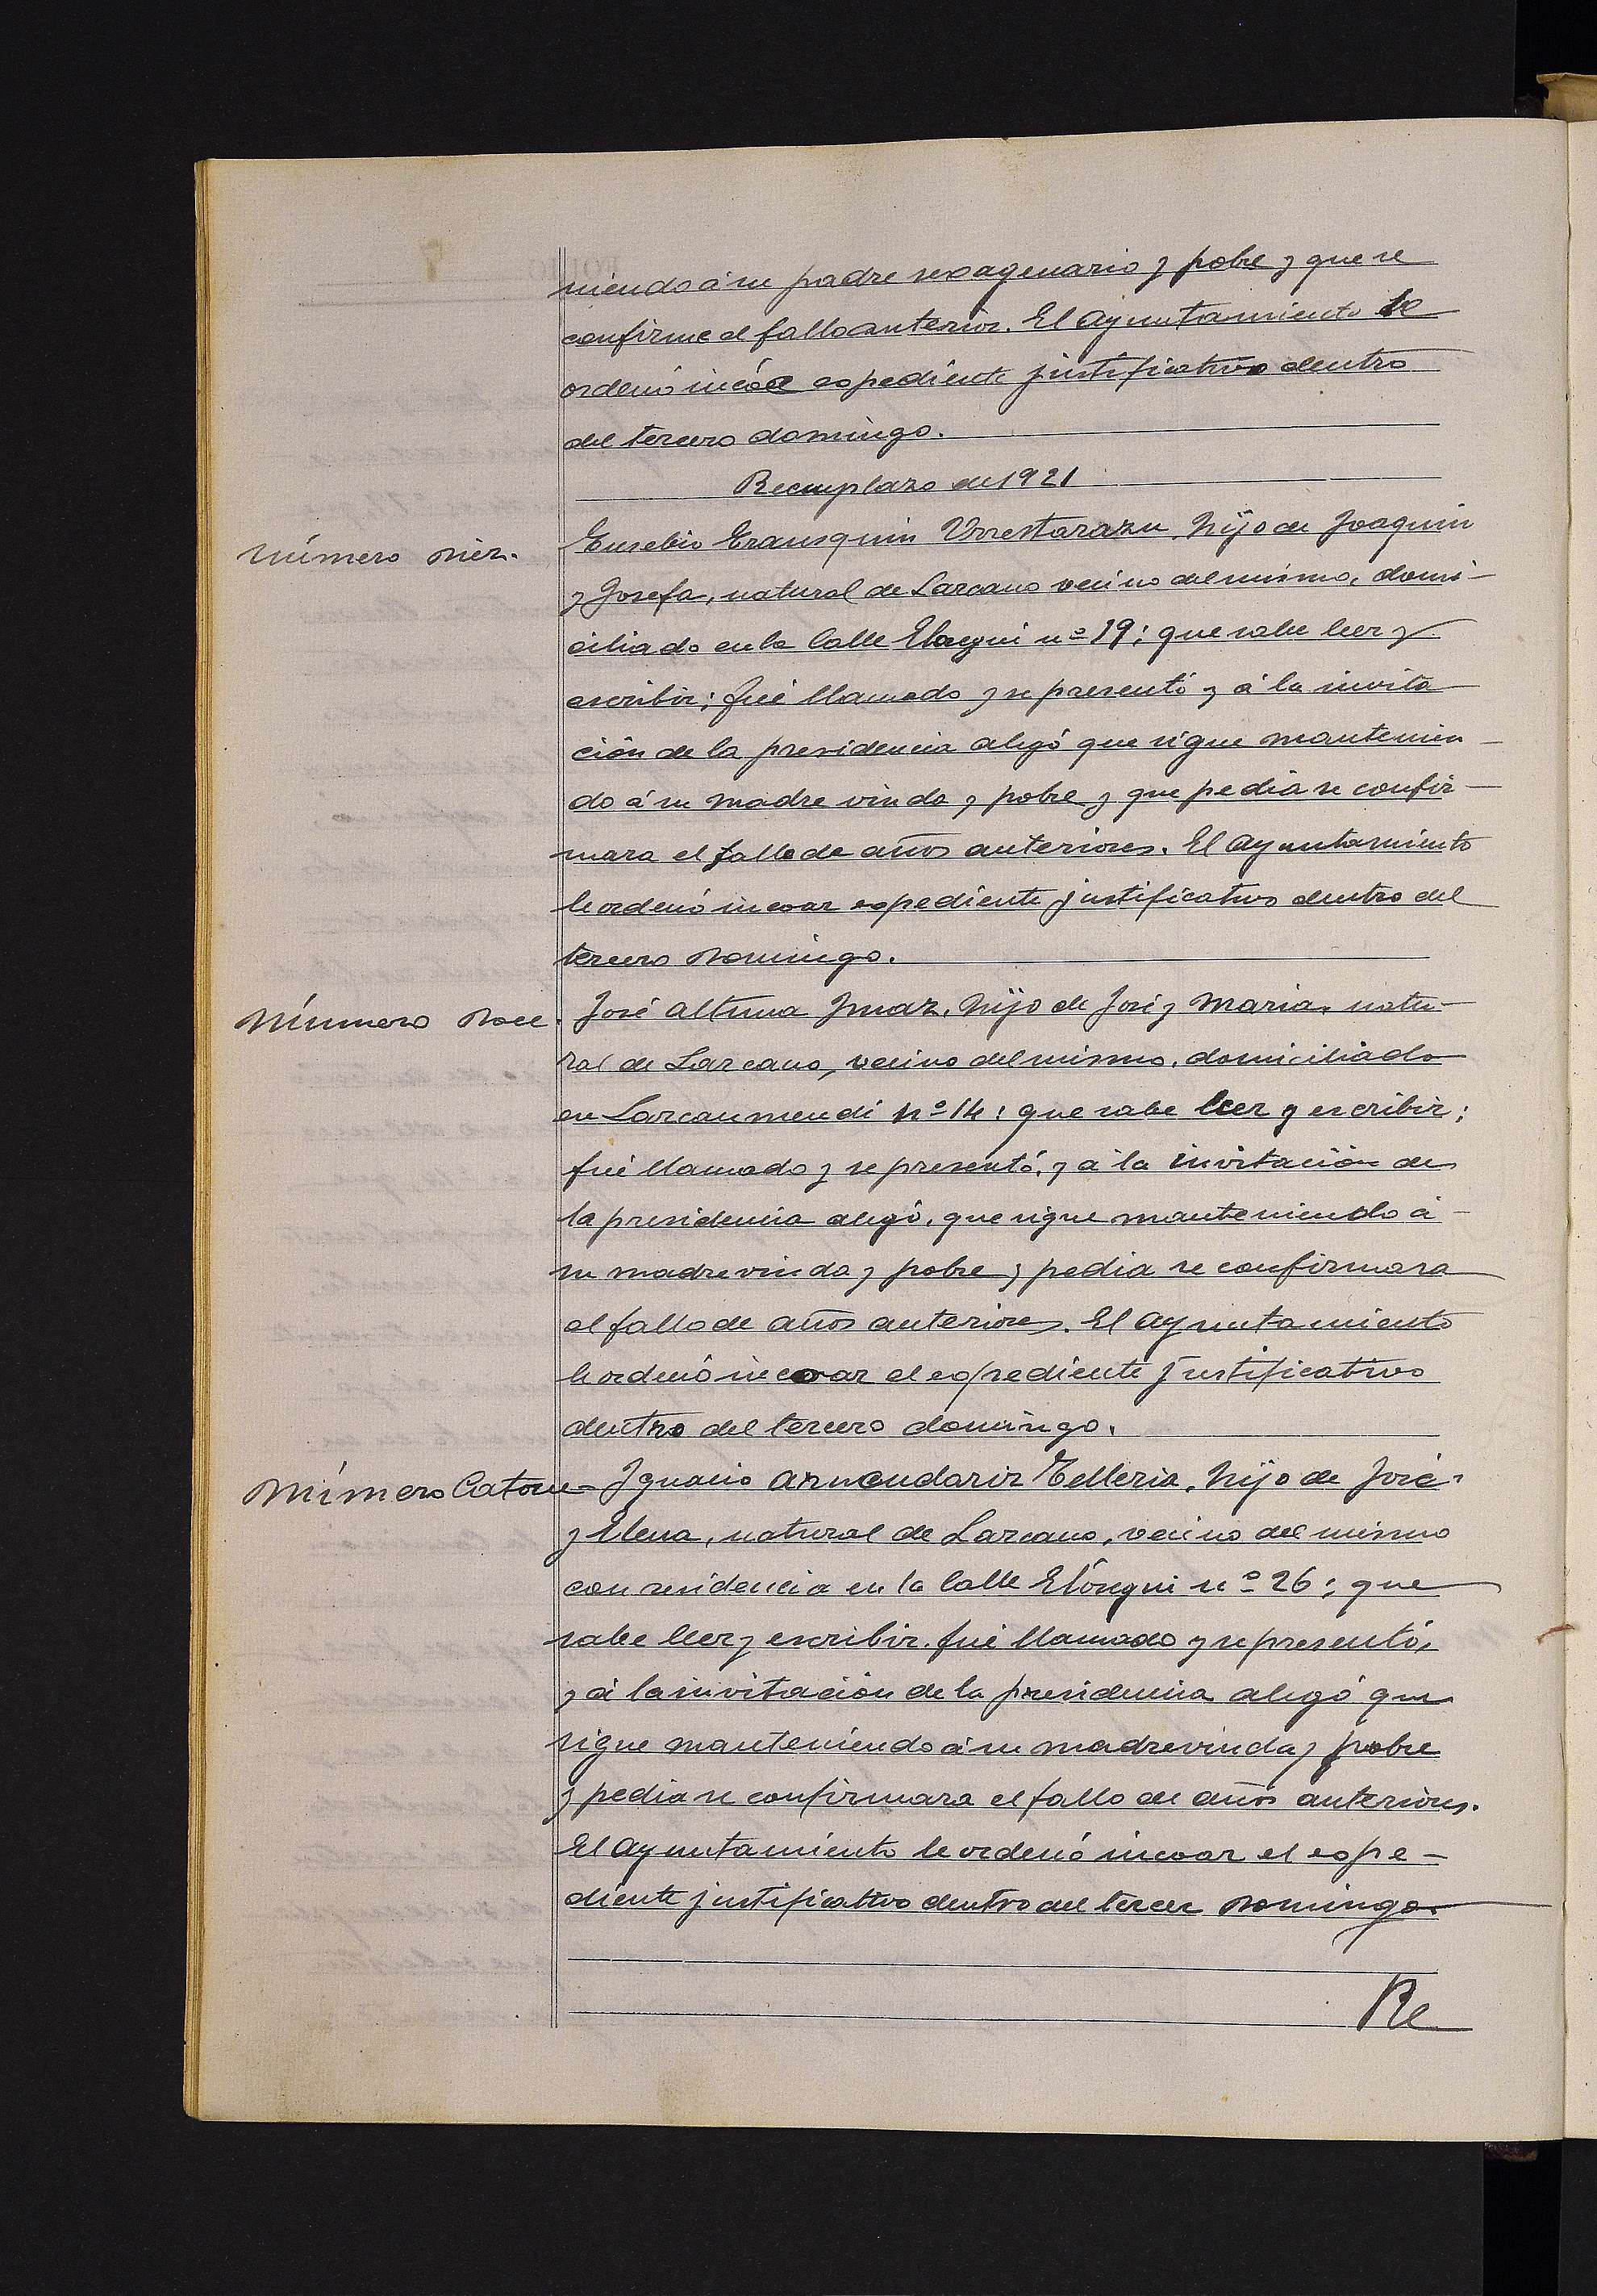 niendo á su padre sexagenario y pobre y que se
confirme el fallo anterior. El Ayuntamiento le
ordenó incóe expediente justificativo dentro
del tercero domingo.
Reemplazo de 1921
Número Diez.
Eusebio Eransquin Urrestarazu, hijo de Joaquin
y Josefa, natural de Lazcano vecino del mismo, domi-
ciliado en la Calle Elosegui nº 19; que sabe leer y
escribir; fué llamado y se presentó y á la invita
ción de la presidencia alegó que sigue mantenien-
do á su madre viuda y pobre y que pedia se confir-
mara el fallo de años anteriores. El Ayuntamiento
le ordenó incoar expediente justificativo dentro del
tercero Domingo.
Número Doce.
José Altuna Imaz, hijo de José y Maria, natu-
ral de Lazcano, vecino del mismo, domiciliado
en Lazcanomendi nº 14; que sabe leer y escribir;
fué llamado y se presentó, y á la invitación de
la presidencia alegó, que sigue manteniendo á
su madre viuda y pobre y pedia se confirmara
el fallo de años anteriores. El Ayuntamiento
le ordenó incoar el expediente justificativo
dentro del tercero domingo.
Número Catorce
Ignacio Aznendariz Telleria, hijo de José
y Elena, natural de Lazcano, vecino del mismo
con residencia en la Calle Elósegui nº 26; que
sabe leer y escribir. fué llamado y se presentó,
y á la invitación de la presidencia alegó que
sigue manteniendo á su madre viuda y pobre
y pedia se confirmara el fallo de años anteriores.
El Ayuntamiento le ordenó incoar el expe-
diente justificativo dentro del tercer Domingo.
Re